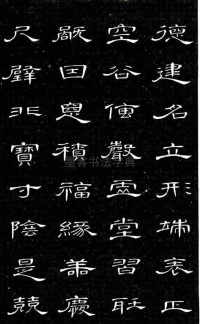 德建名立形端表正
空谷傳聲虛堂習聽
禍因惡積福緣善慶
尺璧非寶寸陰是競